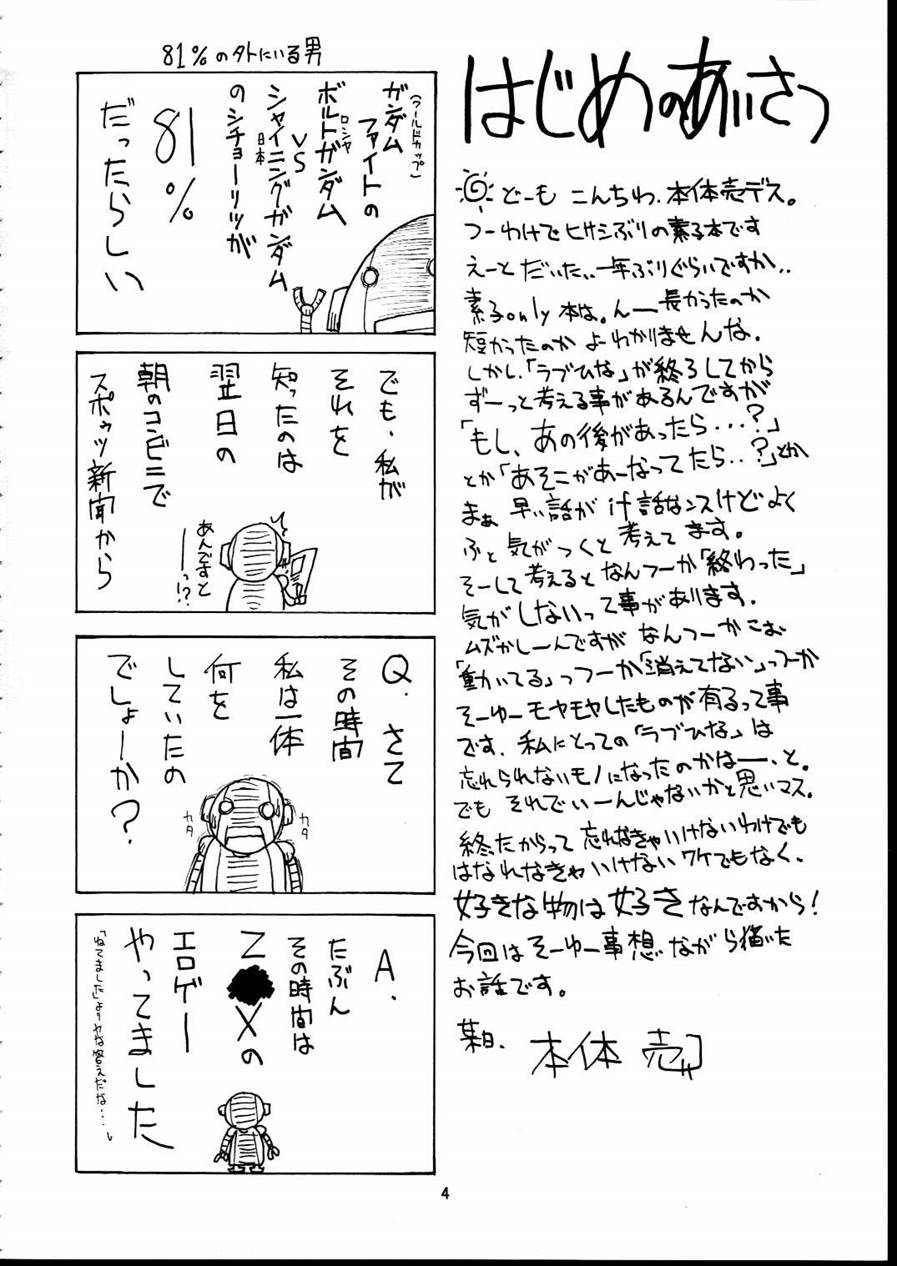 はじめのあいさつ
どーも こんちわ、本体売デス。
つーわけでヒサシぶりの素子本です
えーと だいたい、一年ぶりぐらいですか、、
素子only本は。んー長かったのか
短かったのか よわかりませんな。
しかし、「ラブひな」が終ろしてから
ずーっと考える事があるんですが
「もし、あの後があったら...?」
とか「あそこがあーなってたら..?」とか
まぁ 早い話が if話なンスけどよく
ふと気がつくと 考えてます。
そーして考えると なんつーか「終わった」
気がしないって事があります。
ムズかしーんですが なんつーかこお
「動いてる」っつーか「消えてない」っつーか
そーゆーモヤモヤしたものが有るって事
です、私にとっての「ラブひな」は
忘れられないモノになったのかなー、と。
でも それでいーんじゃないかと思いマス。
終ったからって 忘れなきゃいけないわけでも
はなれなきゃいけないワケでもなく、
好きな物は好きなんですから!
今回はそーゆー事想いながら描いた
お話です。
某日、 本体 売
81%の外にいる男
(ワールドカップ)
ガンダム
ファイトの
ロシャ
ボルトガンダム
VS
シャイニングガンダム
日本
のシチョーリツが
81%
だったらしい
でも、私が
それを
知ったのは
翌日の
朝のコンビニで
スポゥツ新聞から
あんですと
ーっ!?
Q. さて
その時間
私は一体
何を
していたの
でしょーか?
カタ
カタ
A.
たぶん
その時間は
Z Xの
エロゲー
やってました
「ねてました」よりヤな答えだな...」
4